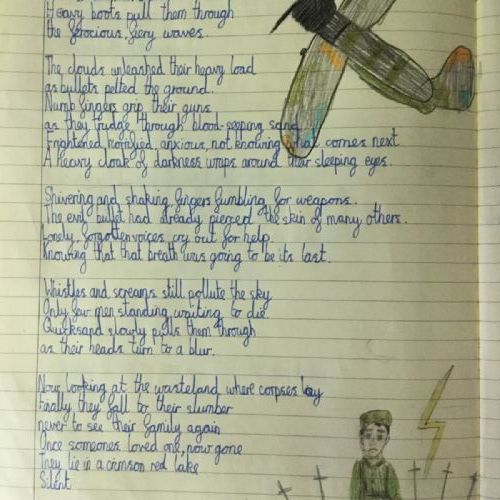 Heavy boots pull them through
the ferocious, fiery waves.
The clouds unleashed their heavy load
as bullets pelted the ground.
Numb fingers grip their guns
as they trudge through blood-seeping sand
Frightened, horrified, anxious, not knowing what comes next
A heavy cloak of darkness wraps around their sleeping eyes.
Shivering and shaking fingers fumbling for weapons.
The evil bullet had already pierced the skin of many others.
Lonely, forgotten voices cry out for help.
Knowing that that breath was going to be its last.
Whistles and screams still pollute the sky
Only few men standing, waiting to die.
Quicksand slowly pulls them through
as their heads turn to a blur.
Now looking at the wasteland where corpses lay
Finally they fall to their slumber
never to see their family again
Once someones loved one, now gone
They lie in a crimson red lake
Silent